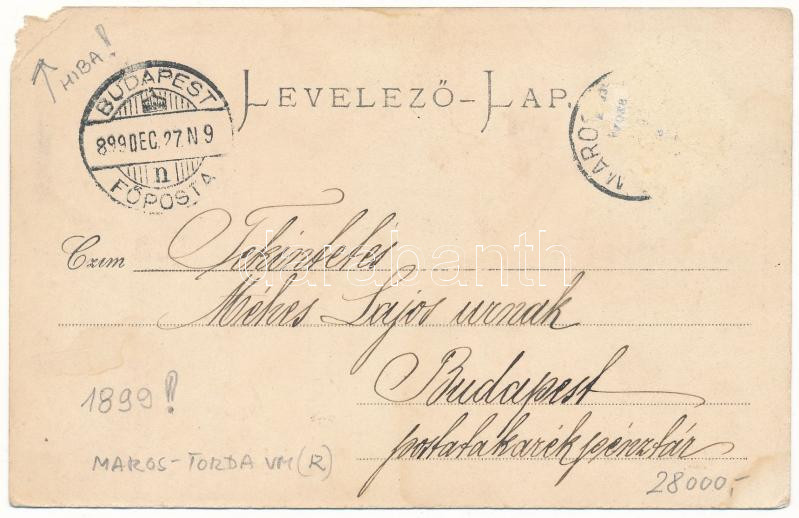 HIBA!
BUDAPEST
899 DEC. 27. N 9
n
FŐPOSTA
LEVELEZŐ-LAP.
MAROS
Czim Tekintetes
Mékes Lajos urnak
Budapest
postatakarékpénztár
1899!
MAROS-TORDA VM (R)
28000,-
darabanth